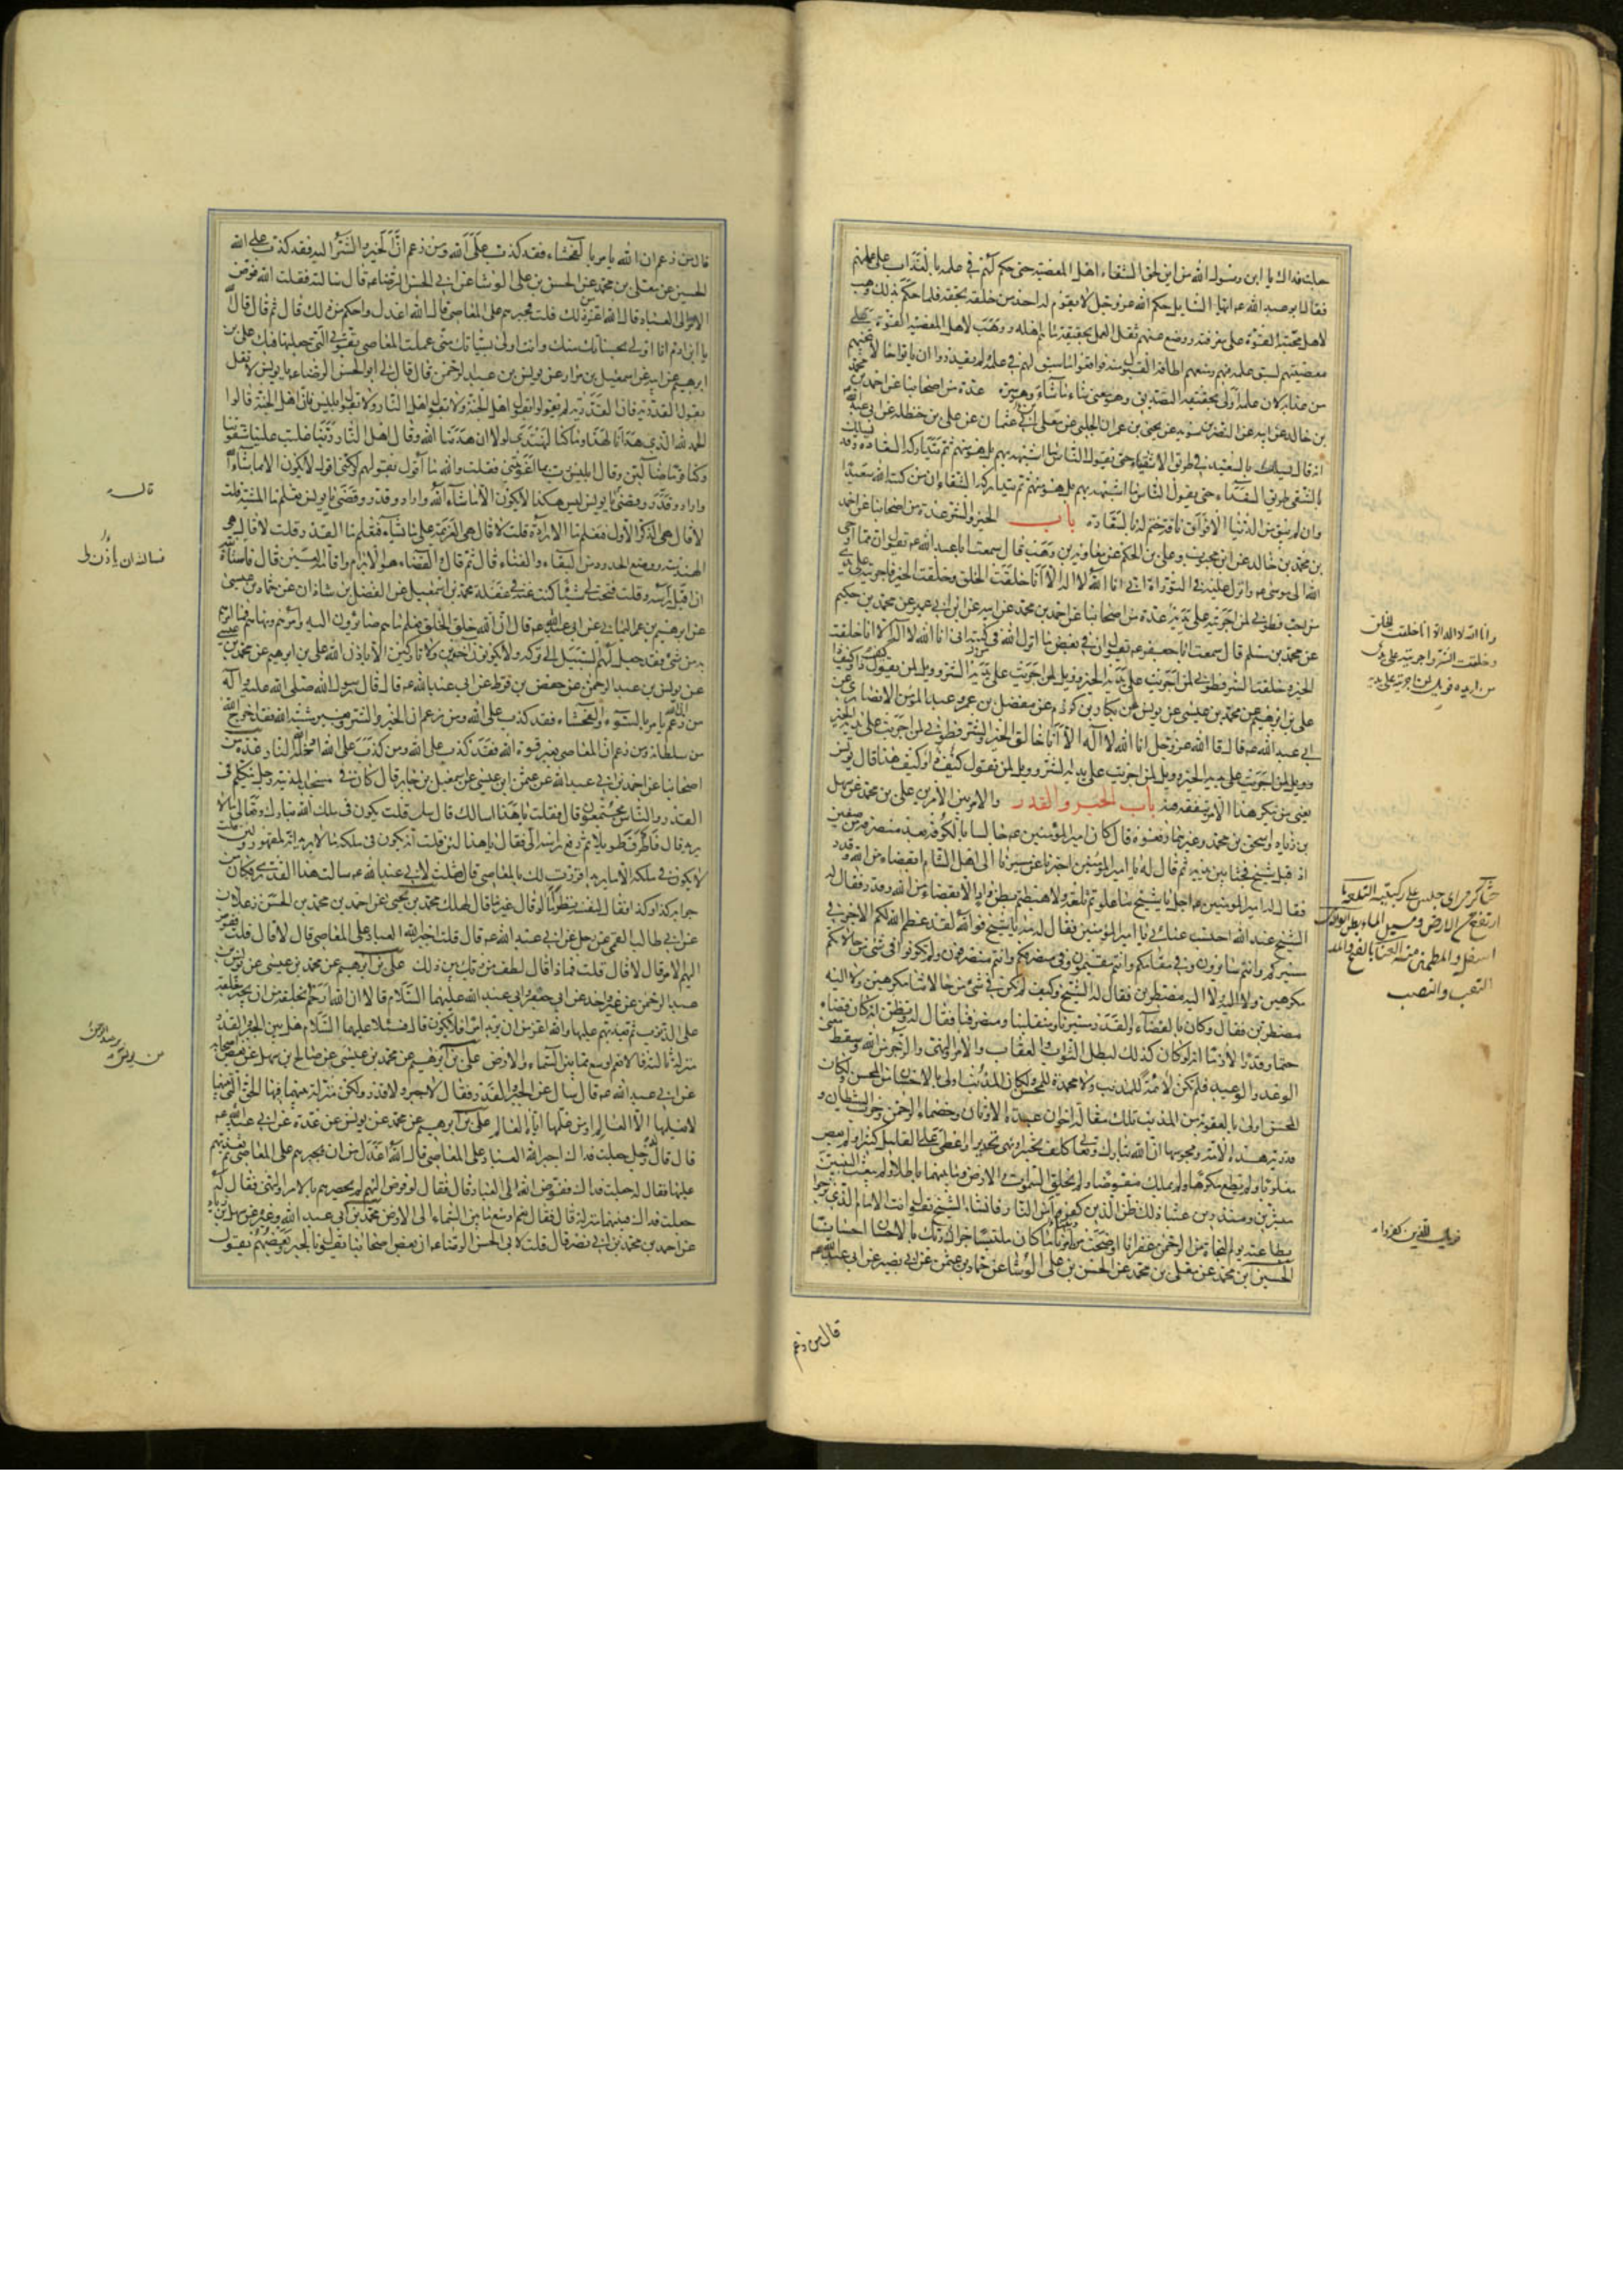 جعلت فداك يا ابن رسول الله من اين لحق الشقاء اهل المعصية حتى حكم لهم في علمه بالعذاب على عملهم
فقال ابو عبد الله ع ايها السايل حكم الله عز وجل لا يقوم له احد من خلقه بحقه فلما حكم بذلك وهب
لاهل محبته القوة على معرفته ووضع عنهم ثقل العمل بحقيقة ما هم اهله ووهب لاهل المعصية القوة على
معصيتهم لسبق علمه فيهم ومنعهم اطاقة القبول منه فوافقوا ما سبق لهم في علمه ولم يقدروا ان ياتوا حالا تنجيهم
من عذابه لان علمه اولى بحقيقة التصديق وهو معنى شاء ما شاء وهو سره عدة من اصحابنا عن احمد بن محمد
بن خالد عن ابيه عن النضر بن سويد عن يحيى بن عمران الحلبي عن معلى ابي عثمان عن علي بن حنظلة عن ابي عبد الله
انه قال يسلك بالسعيد في طريق الاشقياء حتى يقول الناس ما اشبهه بهم بل هو منهم ثم يتداركه السعادة وقد يسلك
بالشقي طريق السعداء حتى يقول الناس ما اشبهه بهم بل هو منهم ثم يتداركه الشقاء ان من كتبه الله سعيدا
وان لم يبق من الدنيا الا فواق ناقة ختم له بالسعادة باب الخير والشر عدة من اصحابنا عن احمد
بن محمد بن خالد عن ابن محبوب وعلي بن الحكم عن معاوية بن وهب قال سمعت ابا عبد الله ع يقول ان مما اوحى
الله الى موسى ع وانزل عليه في التوراة اني انا الله لا اله الا انا خلقت الخلق وخلقت الخير واجريته على يدي
من احب فطوبى لمن اجريته على يديه عدة من اصحابنا عن احمد بن محمد عن ابيه عن ابن ابي عمير عن محمد بن حكيم
عن محمد بن مسلم قال سمعت ابا جعفر ع يقول ان في بعض ما انزل الله في كتبه اني انا الله لا اله الا انا خلقت
الخير وخلقت الشر فطوبى لمن اجريت على يديه الخير وويل لمن اجريت على يديه الشر وويل لمن يقول كيف ذا وكيف ذا
علي بن ابرهيم عن محمد بن عيسى عن يونس عن بكار بن كردم عن مفضل بن عمر وعبد المؤمن الانصاري عن
ابي عبد الله ع قال قال الله عز وجل انا الله لا اله الا انا خالق الخير والشر فطوبى لمن اجريت على يديه الخير
وويل لمن اجريت على يديه الشر وويل لمن يقول كيف ذا وكيف هذا قال يونس
يعني من ينكر هذا الامر بتفقه فيه باب الجبر والقدر والامر بين الامرين علي بن محمد عن سهل
بن زياد واسحق بن محمد وغيرهما رفعوه قال كان امير المؤمنين ع جالسا بالكوفة بعد منصرفه من صفين
اذ اقبل شيخ فجثا بين يديه ثم قال له يا امير المؤمنين اخبرنا عن مسيرنا الى اهل الشام ابقضاء من الله وقدر
فقال له امير المؤمنين ع اجل يا شيخ ما علوتم تلعة ولا هبطتم بطن واد الا بقضاء من الله وقدر فقال له
الشيخ عند الله احتسب عنائي يا امير المؤمنين فقال له مه يا شيخ فوالله لقد عظم الله لكم الاجر في
مسيركم وانتم سايرون وفي مقامكم وانتم مقيمون وفي منصرفكم وانتم منصرفون ولم تكونوا في شيء من حالاتكم
مكرهين ولا اليه مضطرين فقال له الشيخ وكيف لم نكن في شيء من حالاتنا مكرهين ولا اليه
مضطرين وكان بالقضاء والقدر مسيرنا ومنقلبنا ومنصرفنا فقال له وتظن انه كان قضاء
حتما وقدرا لازما انه لو كان كذلك لبطل الثواب والعقاب والامر والنهي والزجر من الله وسقط معنى
الوعد والوعيد فلم تكن لائمة للمذنب ولا محمدة للمحسن ولكان المذنب اولى بالاحسان من المحسن ولكان
المحسن اولى بالعقوبة من المذنب تلك مقالة اخوان عبدة الاوثان وخصماء الرحمن وحزب الشيطان و
قدرية هذه الامة ومجوسها ان الله تبارك وتعالى كلف تخييرا ونهى تحذيرا واعطى على القليل كثيرا ولم يعص
مغلوبا ولم يطع مكرها ولم يملك مفوضا ولم يخلق السموات والارض وما بينهما باطلا ولم يبعث النبيين
مبشرين ومنذرين عبثا ذلك ظن الذين كفروا فويل للذين كفروا من النار فانشا الشيخ يقول انت الامام الذي نرجوا
بطاعته يوم النجاة من الرحمن غفرانا اوضحت من امرنا ما كان ملتبسا جزاك ربك بالاحسان احسانا
الحسين بن محمد عن معلى بن محمد عن الحسن بن علي الوشا عن حماد بن عثمن عن ابي بصير عن ابي عبد الله ع
قال من زعم
وانا الله لا اله الا انا خلقت الخلق
وخلقت الشر واجريته على يدي
من اريده فويل لمن اجريته على يديه
جثا كرمى جلس على ركبتيه التلعة ما
ارتفع من الارض ومسيل الماء بطن الوادي
اسفله والمطمئن منه العنا بالفتح والمد
التعب والنصب
فويل للذين كفروا
قال من زعم ان الله يامر بالفحشاء فقد كذب على الله ومن زعم ان الخير والشر اليه فقد كذب على الله
الحسين بن محمد عن معلى بن محمد عن الحسن بن علي الوشا عن ابي الحسن الرضا ع قال سالته فقلت الله فوض
الامر الى العباد قال الله اعز من ذلك قلت فجبرهم على المعاصي قال الله اعدل واحكم من ذلك قال ثم قال قال الله
يا ابن ادم انا اولى بحسناتك منك وانت اولى بسيئاتك مني عملت المعاصي بقوتي التي جعلتها فيك علي بن
ابرهيم عن ابيه عن اسمعيل بن مرار عن يونس بن عبد الرحمن قال قال لي ابو الحسن الرضا ع يا يونس لا تقل
بقول القدرية فان القدرية لم يقولوا بقول اهل الجنة ولا بقول اهل النار ولا بقول ابليس فان اهل الجنة قالوا
الحمد لله الذي هدانا لهذا وما كنا لنهتدي لولا ان هدانا الله وقال اهل النار ربنا غلبت علينا شقوتنا
وكنا قوما ضالين وقال ابليس رب بما اغويتني فقلت والله ما اقول بقولهم ولكني اقول لا يكون الا ما شاء الله
واراد وقدر وقضى يا يونس ليس هكذا لا يكون الا ما شاء الله واراد وقدر وقضى يا يونس تعلم ما المشية قلت
لا قال هي الذكر الاول فتعلم ما الارادة قلت لا قال هي العزيمة على ما يشاء فتعلم ما القدر قلت لا قال هي
الهندسة ووضع الحدود من البقاء والفناء قال ثم قال والقضاء هو الابرام واقامة العين قال فاستاذنته
ان اقبل راسه وقلت فتحت لي شيئا كنت عنه في غفلة محمد بن اسمعيل عن الفضل بن شاذان عن حماد بن عيسى
عن ابرهيم بن عمر اليماني عن ابي عبد الله ع قال ان الله خلق الخلق فعلم ما هم صائرون اليه وامرهم ونهاهم فما امرهم
به من شيء فقد جعل لهم السبيل الى تركه ولا يكونون آخذين ولا تاركين الا باذن الله علي بن ابرهيم عن محمد بن عيسى
عن يونس بن عبد الرحمن عن حفص بن قرط عن ابي عبد الله ع قال قال رسول الله صلى الله عليه وآله
من زعم ان الله يامر بالسوء والفحشاء فقد كذب على الله ومن زعم ان الخير والشر بغير مشية الله فقد اخرج الله
من سلطانه ومن زعم ان المعاصي بغير قوة الله فقد كذب على الله ومن كذب على الله ادخله الله النار عدة من
اصحابنا عن احمد بن ابي عبد الله عن عثمن بن عيسى عن اسمعيل بن جابر قال كان في مسجد المدينة رجل يتكلم في
القدر والناس مجتمعون قال فقلت يا هذا اسالك قال سل قلت يكون في ملك الله تبارك وتعالى ما لا
يريد قال فاطرق طويلا ثم رفع راسه الي فقال يا هذا لئن قلت انه يكون في ملكه ما لا يريد انه لمقهور ولئن قلت
لا يكون في ملكه الا ما يريد اقررت لك بالمعاصي قال فقلت لابي عبد الله ع سالت هذا القدري فكان من
جوابه كذا وكذا فقال لنفسه نظر اما لو قال غير ما قال لهلك محمد بن يحيى عن احمد بن محمد بن الحسن زعلان
عن ابي طالب القمي عن رجل عن ابي عبد الله ع قال قلت اجبر الله العباد على المعاصي قال لا قال قلت ففوض
اليهم الامر قال لا قال قلت فماذا قال لطف من ربك بين ذلك علي بن ابرهيم عن محمد بن عيسى عن يونس بن
عبد الرحمن عن غير واحد عن ابي جعفر وابي عبد الله عليهما السلام قالا ان الله ارحم بخلقه من ان يجبر خلقه
على الذنوب ثم يعذبهم عليها والله اعز من ان يريد امرا فلا يكون قال فسئلا عليهما السلام هل بين الجبر والقدر
منزلة ثالثة قالا نعم اوسع مما بين السماء والارض علي بن ابرهيم عن محمد بن عيسى عن صالح بن سهل عن بعض اصحابه
عن ابي عبد الله ع قال سئل عن الجبر والقدر فقال لا جبر ولا قدر ولكن منزلة بينهما فيها الحق التي بينهما
لا يعلمها الا العالم او من علمها اياه العالم علي بن ابرهيم عن محمد عن يونس عن عدة عن ابي عبد الله ع
قال قال له رجل جعلت فداك اجبر الله العباد على المعاصي قال الله اعدل من ان يجبرهم على المعاصي ثم يعذبهم
عليها فقال له جعلت فداك ففوض الله الى العباد قال فقال لو فوض اليهم لم يحصرهم بالامر والنهي فقال له
جعلت فداك فبينهما منزلة قال فقال نعم اوسع ما بين السماء الى الارض محمد بن ابي عبد الله وغيره عن سهل بن زياد
عن احمد بن محمد بن ابي نصر قال قلت لابي الحسن الرضا ع ان بعض اصحابنا يقول بالجبر وبعضهم يقول
قال
فساله ان ياذن ط
من يونس بن عبد الرحمن